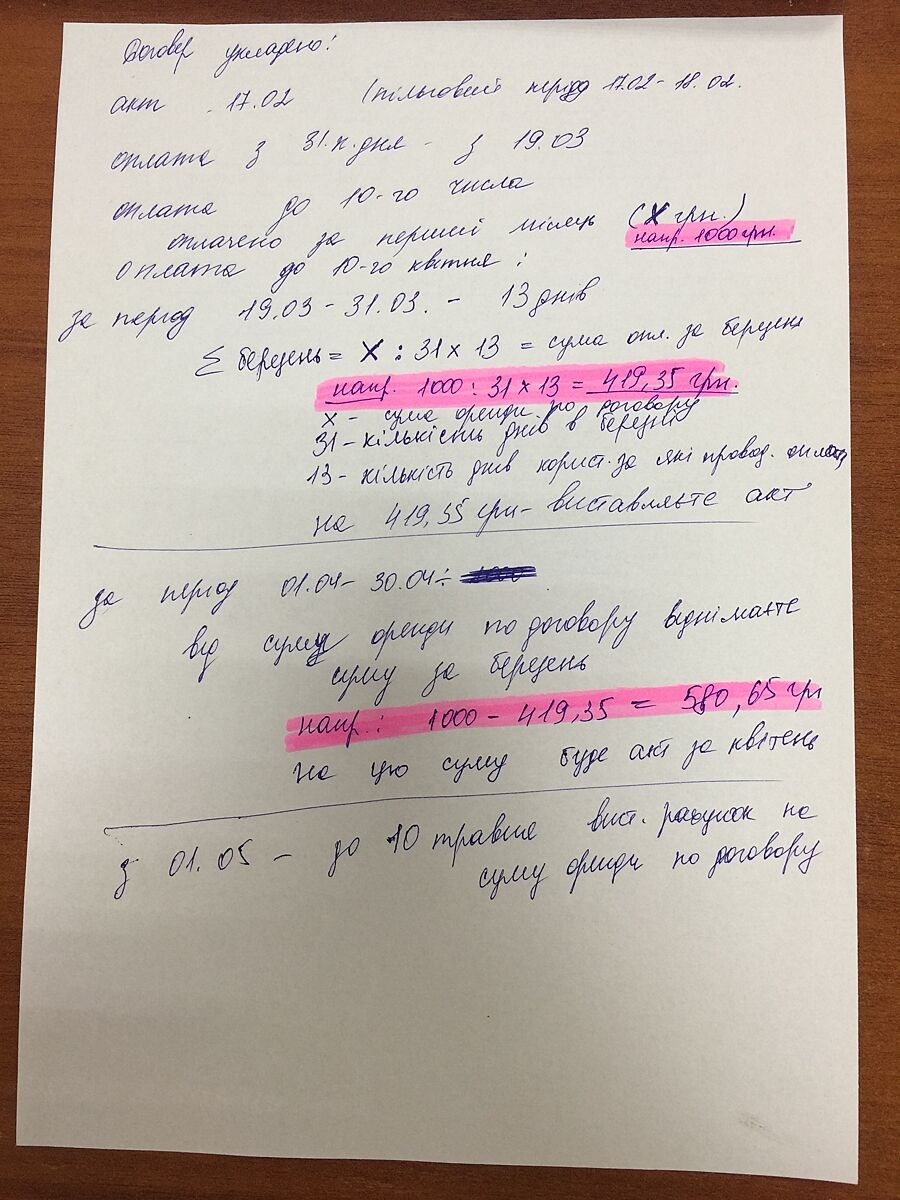 Договір укладено:
акт 17.02 (пільговий період 17.02 - 18.02.
оплата з 31.к.дня - з 19.03
оплата до 10-го числа
оплачено за перший місяць (X грн.)
напр. 1000 грн.
Оплата до 10-го квітня:
за період 19.03 - 31.03. - 13 днів
Σ березень = X : 31 x 13 = сума опл. за березень
напр. 1000 : 31 x 13 = 419,35 грн.
x - сума оренди по договору
31 - кількість днів в березні
13 - кількість днів корист. за які провод. оплата
на 419,35 грн - виставляєте акт
за період 01.04 - 30.04 ÷
від суми оренди по договору віднімаєте
суму за березень
напр.: 1000 - 419,35 = 580,65 грн
на цю суму буде акт за квітень
з 01.05 - до 10 травня вист. рахунок на
суму оренди по договору